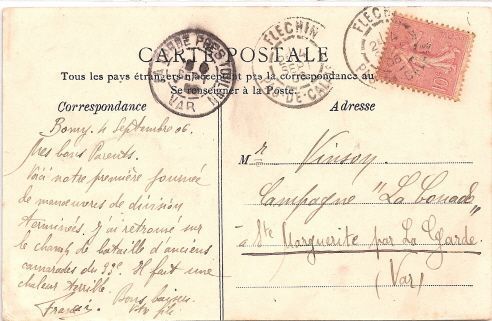 CARTE POSTALE
Tous les pays étrangers n'acceptent pas la correspondance au
Se renseigner à la Poste.
Correspondance
Adresse
FLECHIN
PAS-DE-CALAIS
FLECHIN
LA GARDE PRES TOULON
VAR
10
Bomy 4 Septembre 06.
Mes bons Parents.
Voici notre première journée
de manœuvres de division
terminée. J'ai retrouvé sur
le champ de bataille d'anciens
camarades du 33e. Il fait une
chaleur terrible.
Bons baisers.
Mr Vinson.
Campagne "La
à Ste Marguerite par La Garde
(Var)